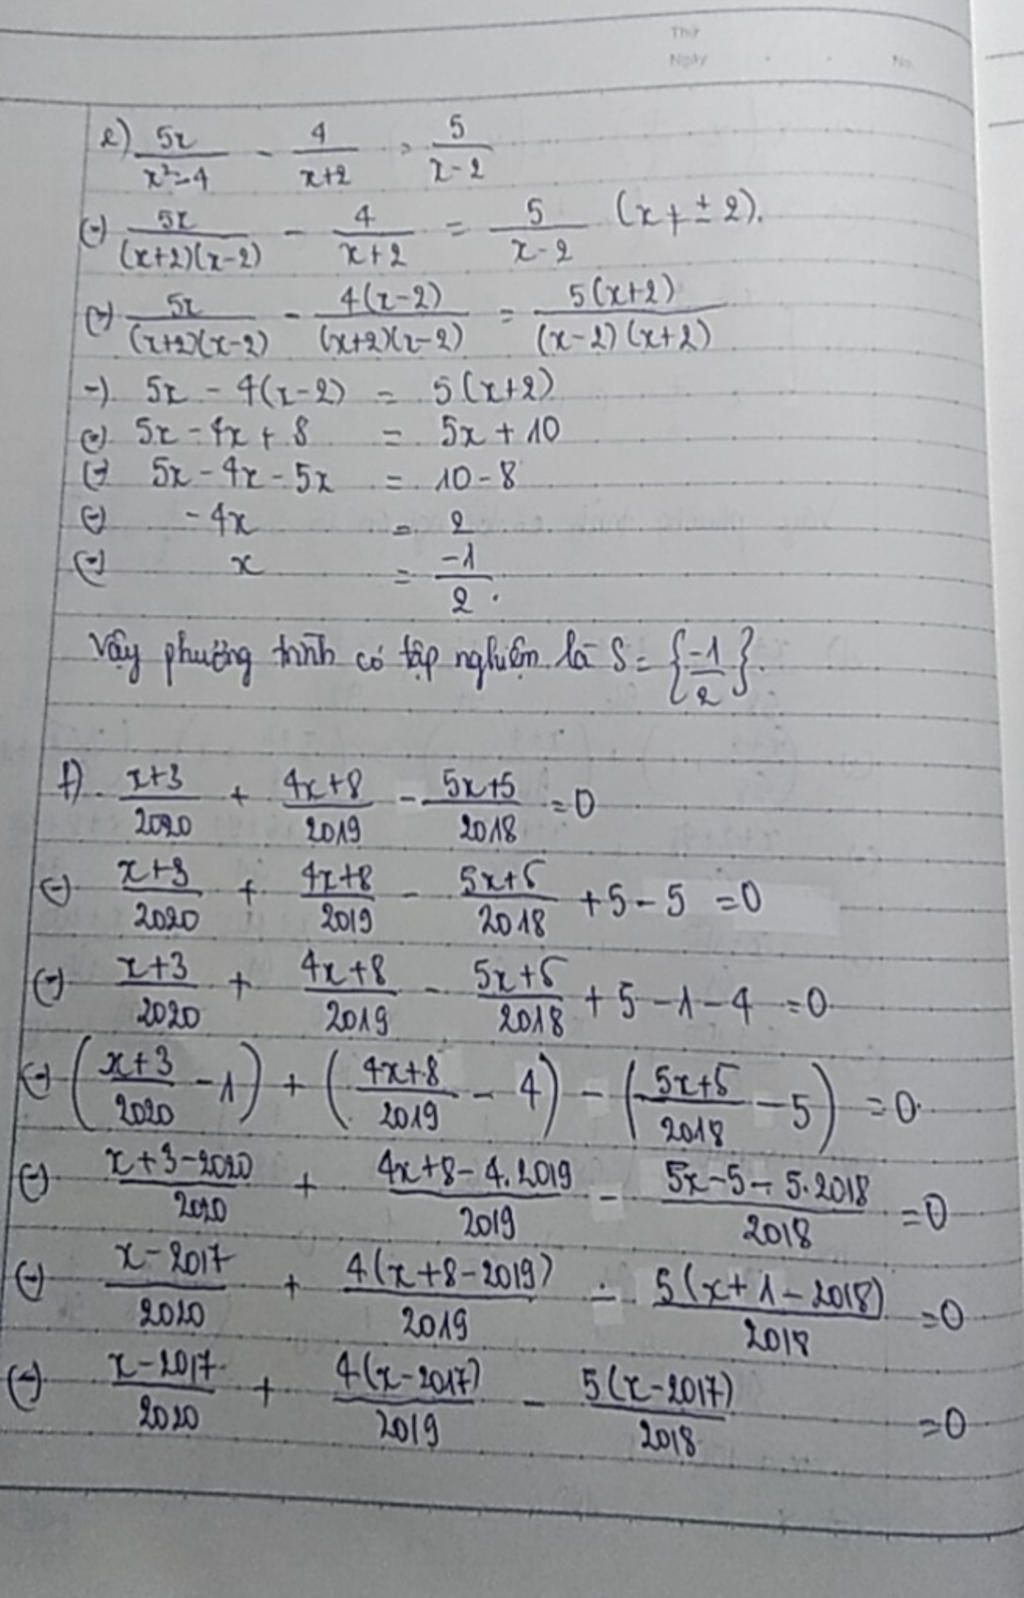 Thứ
Ngày . . No.
e) 5x/(x²-4) - 4/(x+2) = 5/(x-2)
(=) 5x/((x+2)(x-2)) - 4/(x+2) = 5/(x-2) (x ≠ ± 2).
(=) 5x/((x+2)(x-2)) - 4(x-2)/((x+2)(x-2)) = 5(x+2)/((x-2)(x+2))
=) 5x - 4(x-2) = 5(x+2)
(=) 5x - 4x + 8 = 5x + 10
(=) 5x - 4x - 5x = 10 - 8
(=) -4x = 2
(=) x = -1/2.
Vậy phương trình có tập nghiệm là S = {-1/2}.
f) (x+3)/2020 + (4x+8)/2019 - (5x+5)/2018 = 0
(=) (x+3)/2020 + (4x+8)/2019 - (5x+5)/2018 + 5 - 5 = 0
(=) (x+3)/2020 + (4x+8)/2019 - (5x+5)/2018 + 5 - 1 - 4 = 0
(=) ((x+3)/2020 - 1) + ((4x+8)/2019 - 4) - ((5x+5)/2018 - 5) = 0.
(=) (x+3-2020)/2020 + (4x+8-4.2019)/2019 - (5x-5-5.2018)/2018 = 0
(=) (x-2017)/2020 + 4(x+8-2019)/2019 - 5(x+1-2018)/2018 = 0
(=) (x-2017)/2020 + 4(x-2017)/2019 - 5(x-2017)/2018 = 0